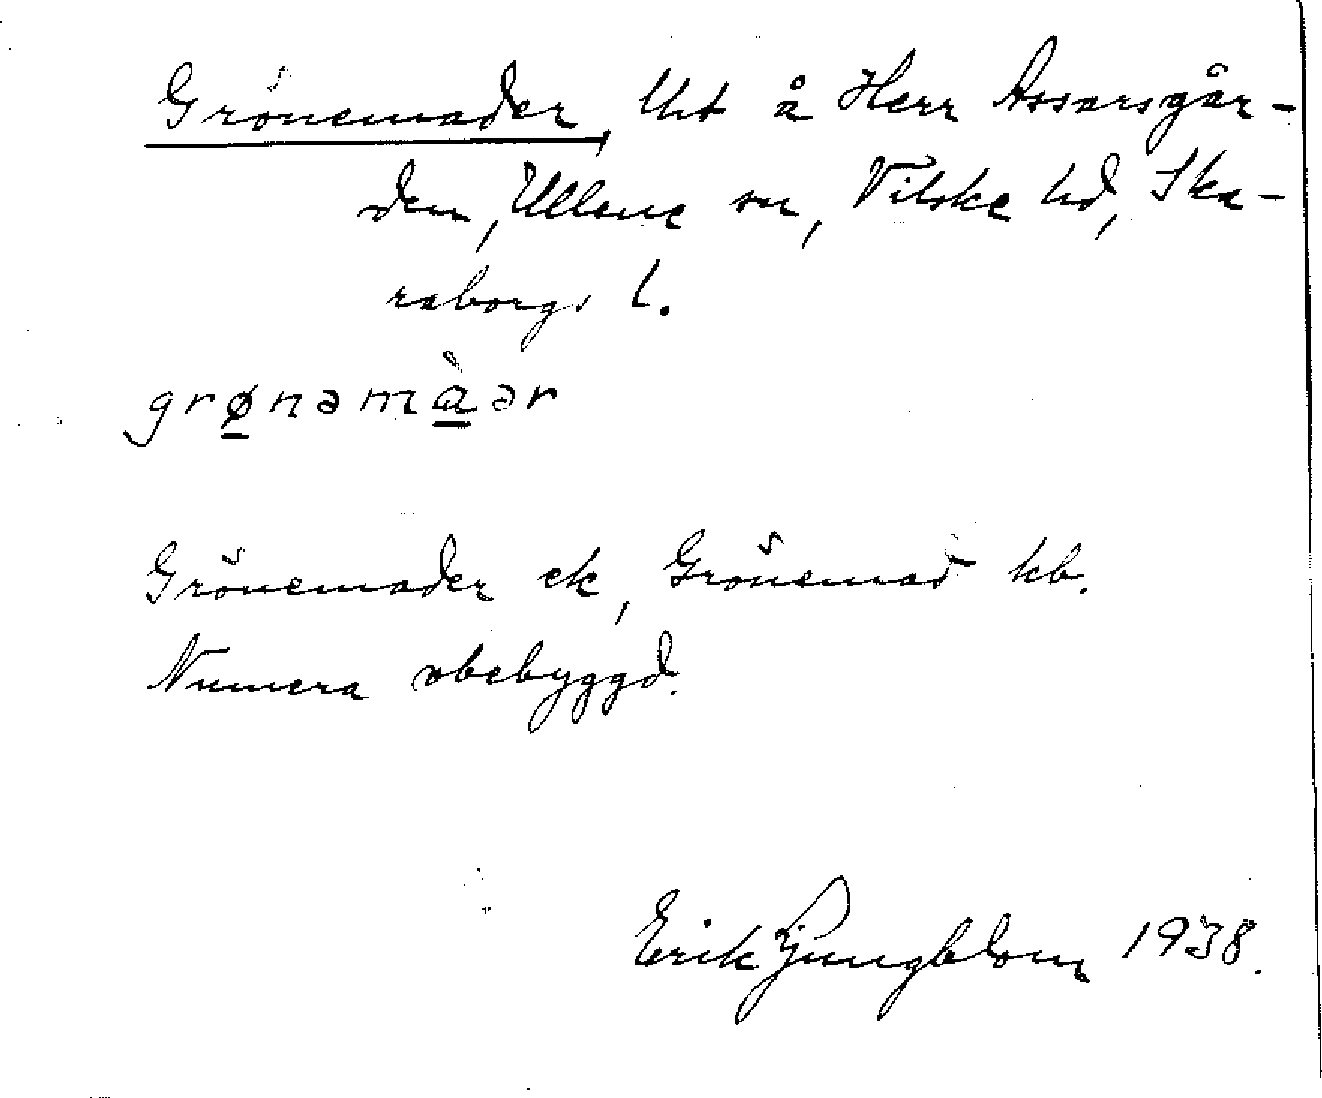 Grönemader, lht å Herr Assarsgår-
den, Ullene sn, Vilske hd, Ska-
raborgs l.
grø̲nəmà̲ər
Grönemader ek, Grönemad kb.
Numera obebyggd.
Erik Ljungblom 1938.